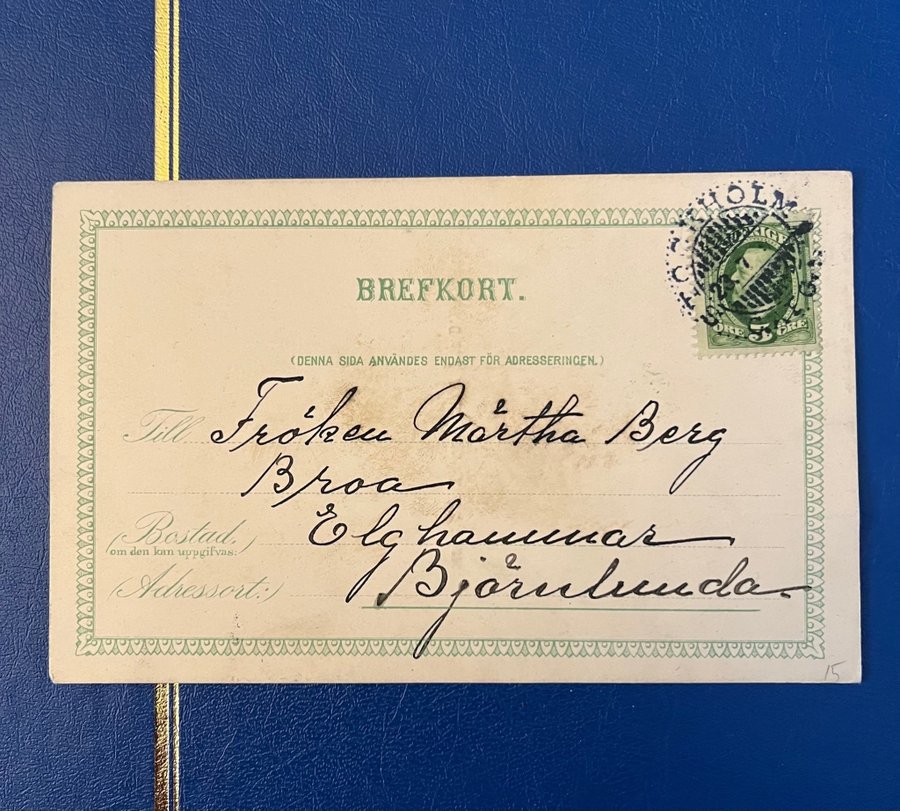 STOCKHOLM
SVERIGE
5
ÖRE ÖRE
BREFKORT.
(DENNA SIDA ANVÄNDES ENDAST FÖR ADRESSERINGEN.)
Till Fröken Märtha Berg
Broa
(Bostad,
om den kan uppgifvas:
Elghammar
(Adressort:)
Björnlunda
15